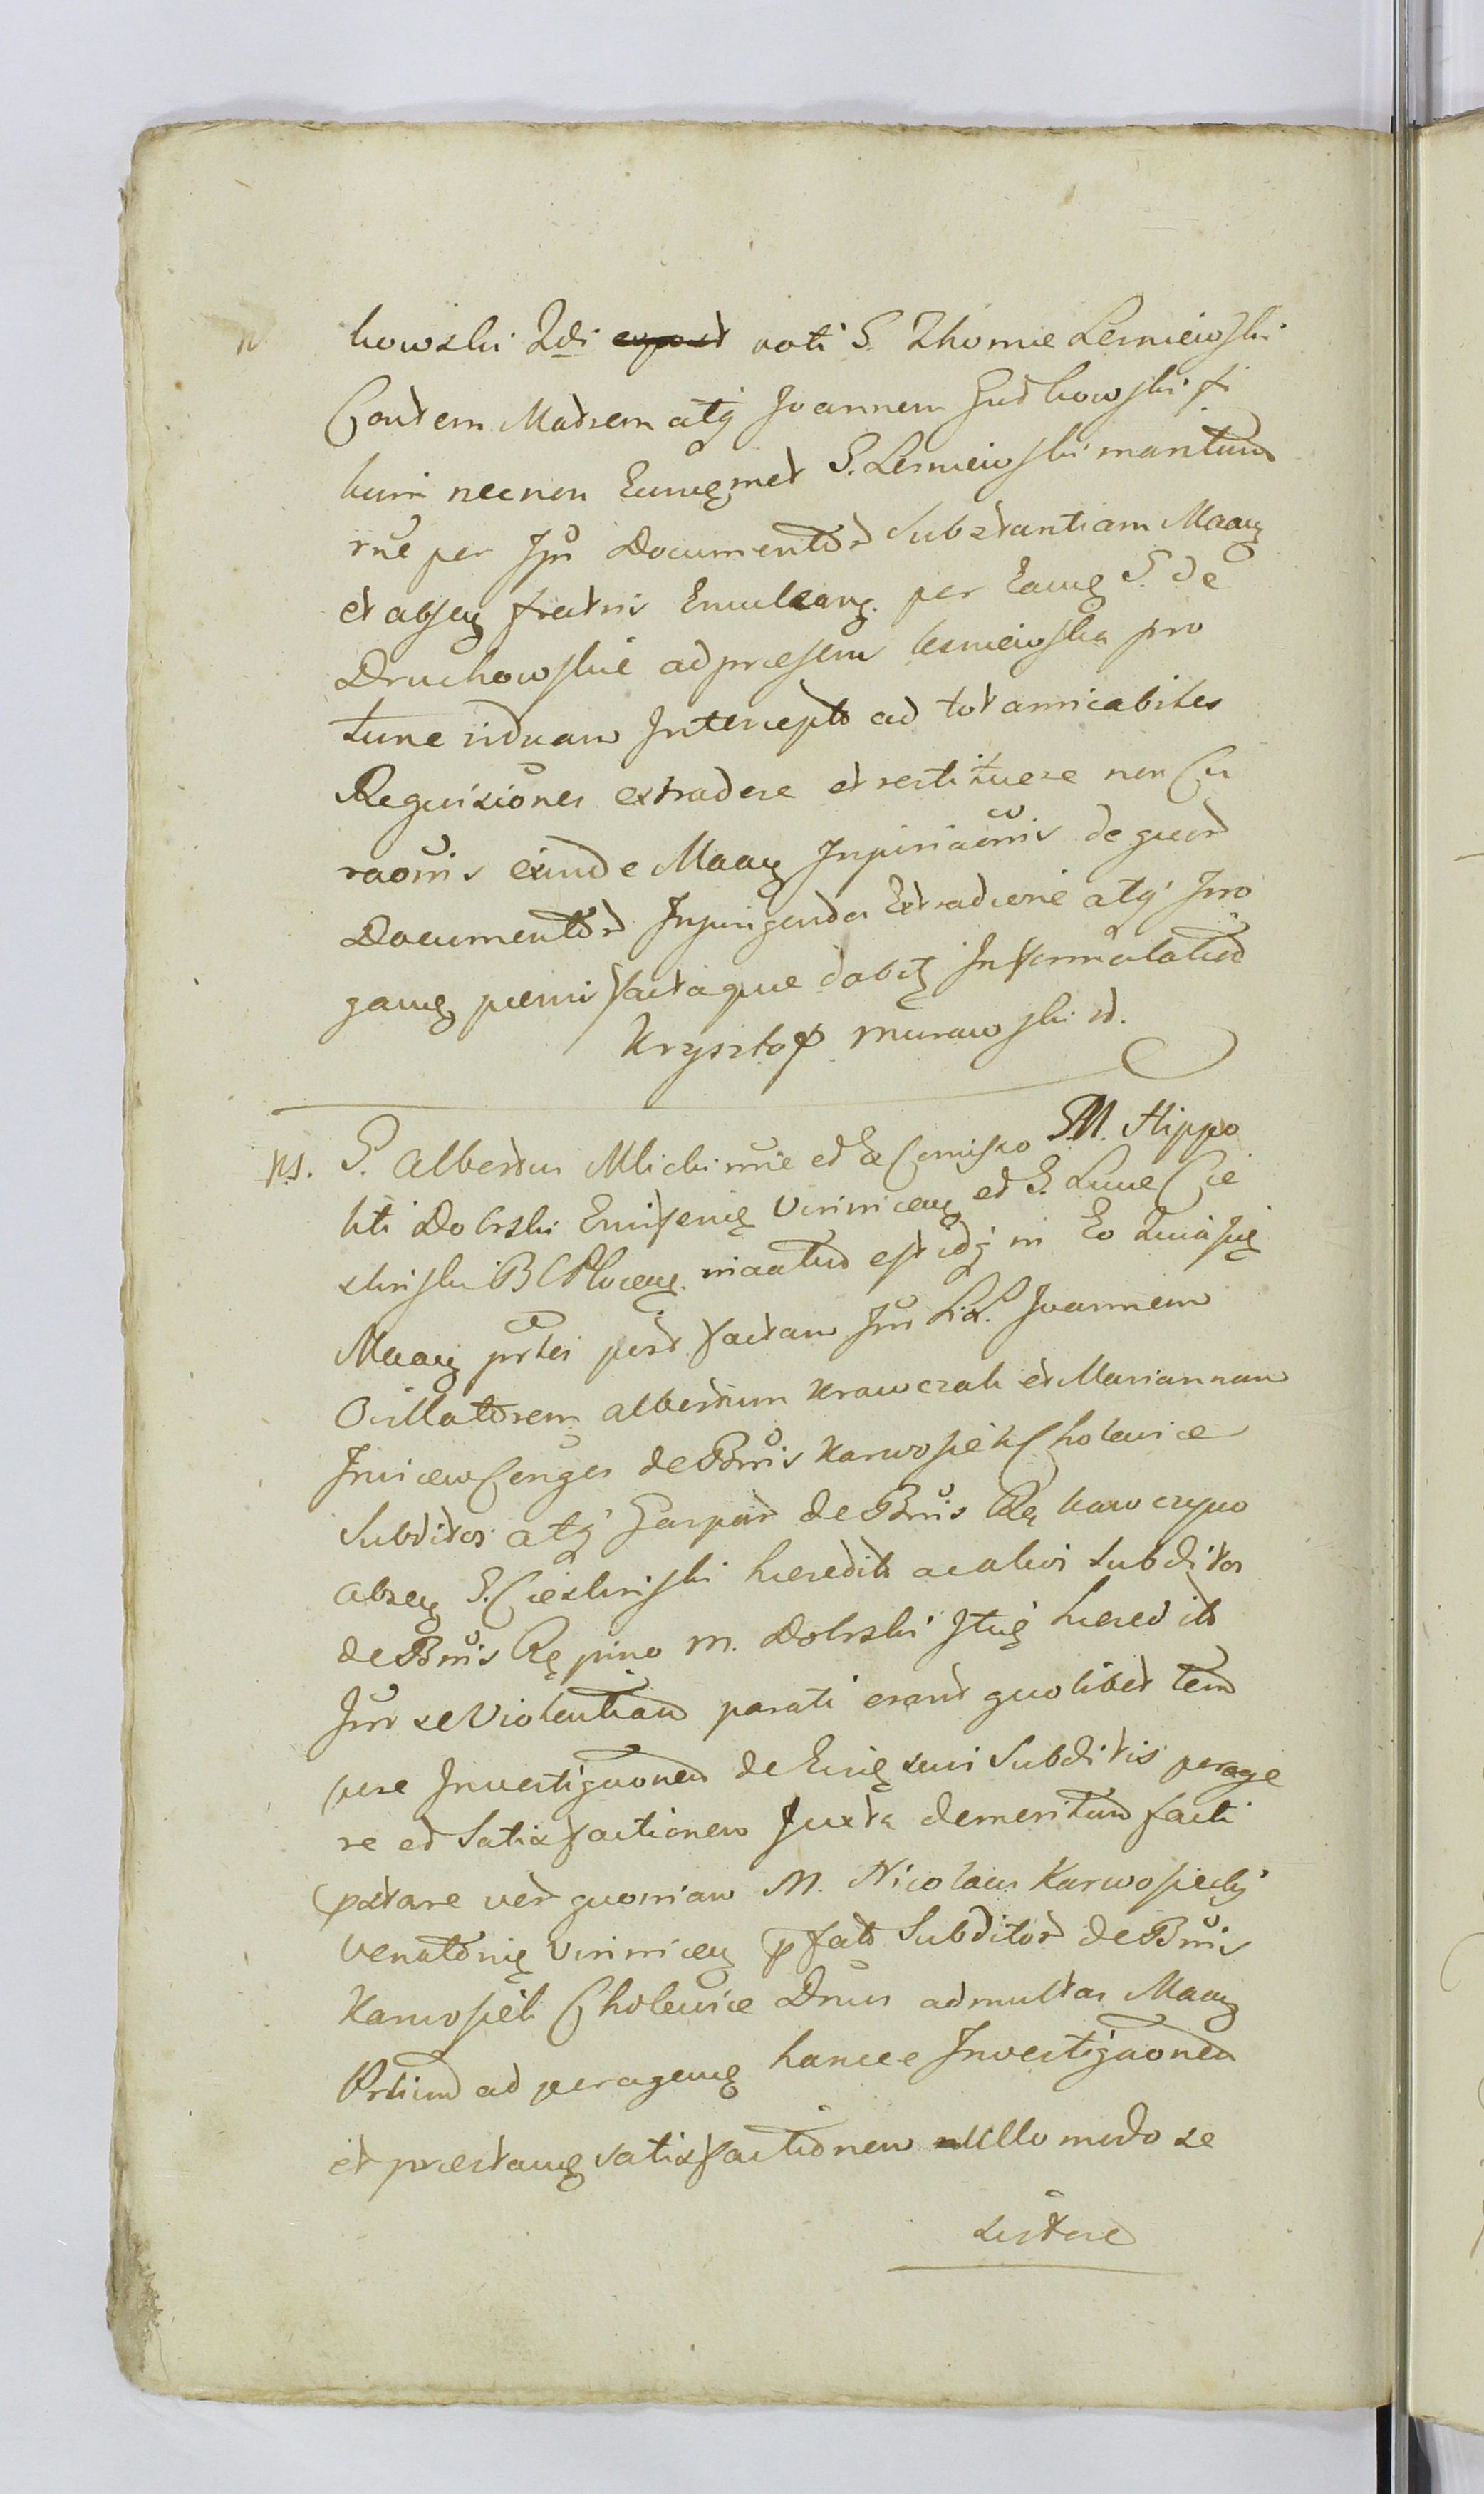 kowski 2di voti G. Thomæ Lesniewski
Contem Matrem atq Joannem Gutkowski fi
lium necnon Eumq met G. Lesniewski maritum
rne per Jpn Documentor Substantiam Maaq
et absenq fratris per Eamq G. de
Druchowskie ad præsens Lesniewska pro
tunc viduam Intercept ad tot amicabiles
Requisiones extradere et restituere non Cu
raonis exinde Maaq Injuriaonis de quor
Documentor Injungenda Extradicone atq Irro
ganq pænis factaque dabit
Krzysztof Murawski st.
ns. G. Albertus Mlicki mne et Ex Comisso G.M. Hippo
liti Dobrski Ensiferiq Visnicenq et G. Lucæ Cie
slinski B C Plocenq. niaatus est idq in Eo Quiasuq
Maaq prtes post factam Jnr L.L. Joannem
Oeillatorem Albertum Krawczak et Mariannam
Invicem Conges de Bnis Karwosieki Cholewice
Subditos atq Gaspar de Bnis
absenq G. Cieslinski heredit ac alios subditos
de Bnis Rępino M. Dobrski Jtuq heredit
Jnr se Violentiam parati erant quolibet tem
pore Investiguonem de Eisq suis Subditis perage
re et Satisfactionem Juxta demeritum facti
pstare ver quoniam M. Nicolaus Karwosiecki
Venatoriq Visnicenq pfat Subditor de Bnis
Karwosiek Cholewice Dnus ad multas Maaq
Prtium ad peragenq hancce Investiguonem
et præstanq satisfactionem nullo modo se
sistere